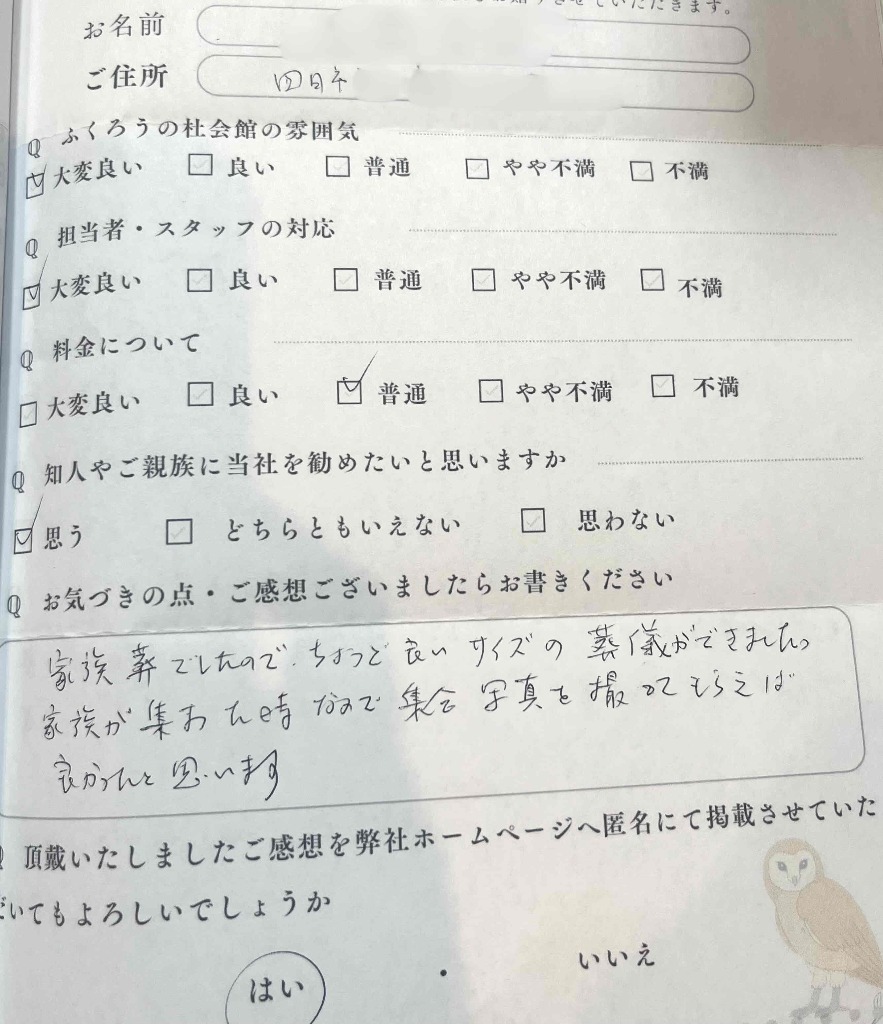 お名前
ご住所 四日市
Q ふくろうの杜会館の雰囲気
大変良い 良い 普通 やや不満 不満
Q 担当者・スタッフの対応
大変良い 良い 普通 やや不満 不満
Q 料金について
大変良い 良い 普通 やや不満 不満
Q 知人やご親族に当社を勧めたいと思いますか
思う どちらともいえない 思わない
Q お気づきの点・ご感想ございましたらお書きください
家族葬でしたので、ちょうど良いサイズの葬儀ができました。
家族が集まった時なので集合写真を撮ってもらえば
良かったと思います
Q 頂戴いたしましたご感想を弊社ホームページへ匿名にて掲載させていた
だいてもよろしいでしょうか
はい ・ いいえ